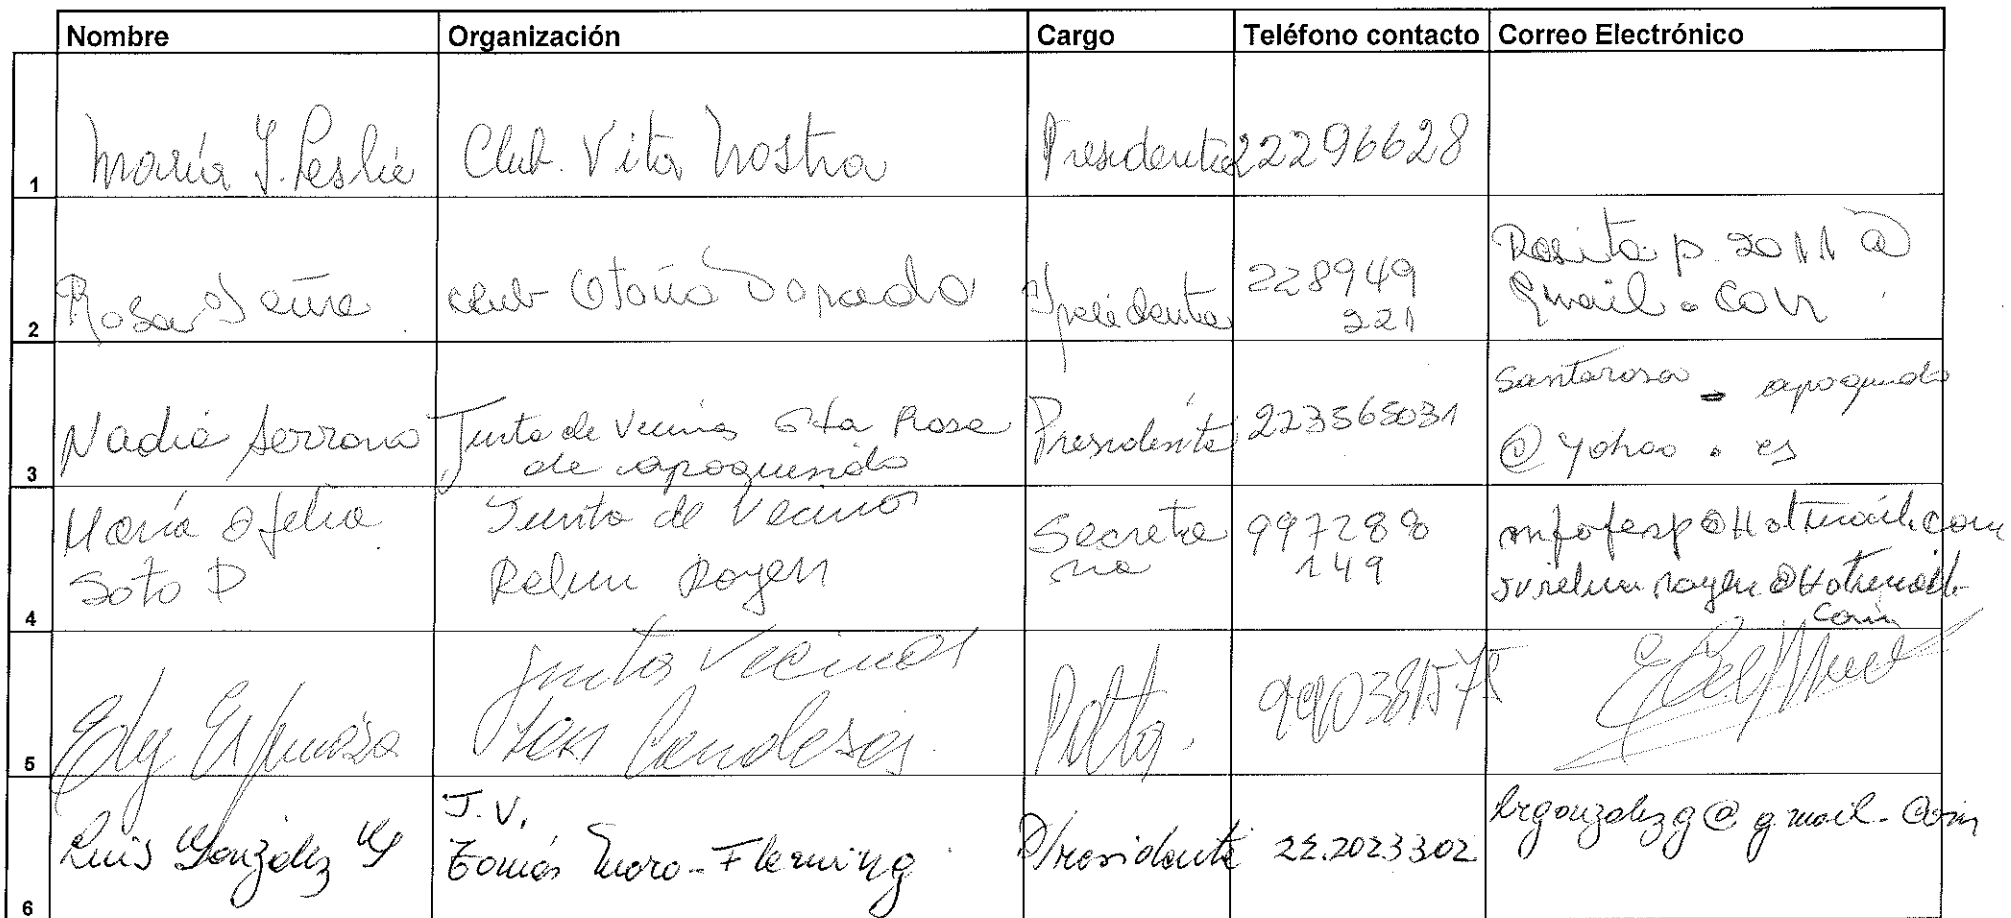 Nombre Organización Cargo Teléfono contacto Correo Electrónico
1 María Y. Leslie Club. Vita Nostra Presidenta 22296628
2 Rosa Peña club Otoño Dorado Presidenta 228949 221 Rosita.p.2011@ Gmail.com
3 Nadia Serrano Junta de Vecinos Sta Rosa de apoquindo Presidenta 223565031 santarosa_apoquindo @yahoo.es
4 María Ofelia Soto D Junta de Vecinos Relun Rayen Secreta ria 997288 149 mfofesp@Hotmail.com jvrelun rayen@Hotmail. com
5 Edy Espinoza Junta Vecinos Las Condesas Pdta. 990381575
6 Luis González G J.V. Tomás Moro-Fleming Presidente 22.2023302 lrgonzalezg@gmail.com